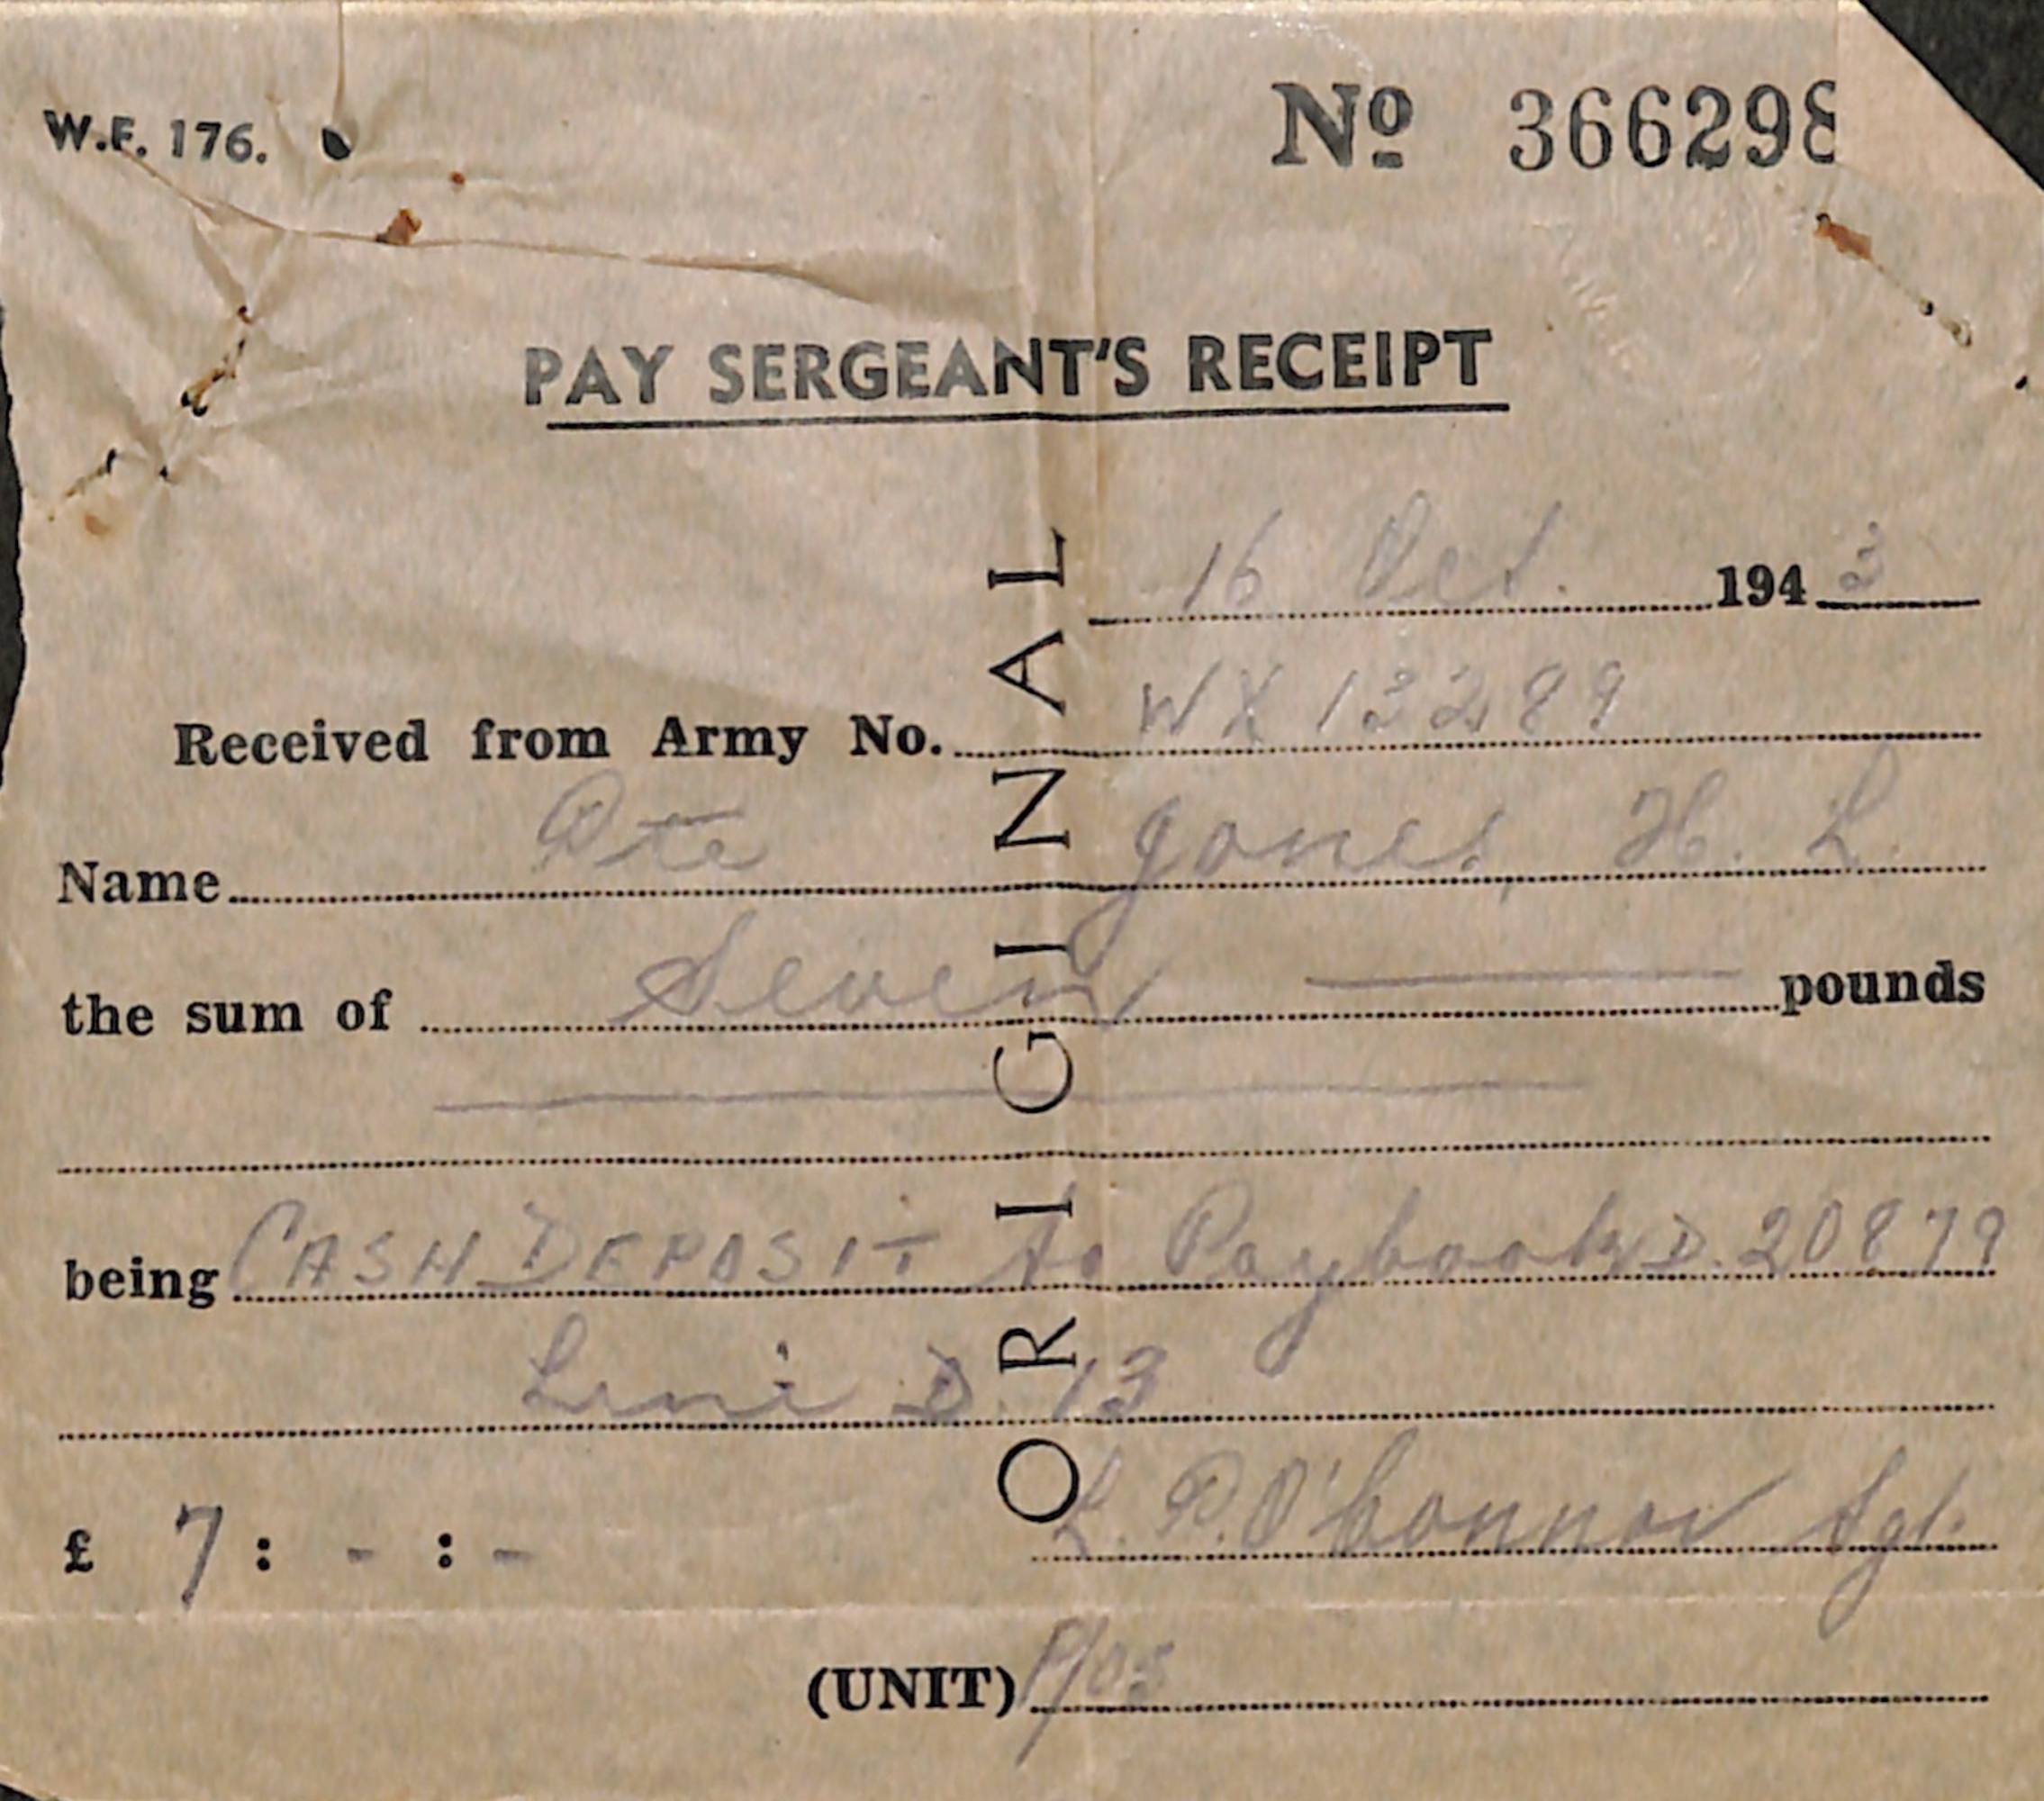 W.F. 176. Nº 366298
PAY SERGEANT'S RECEIPT
16 Oct. 1943
Received from Army No. WX 13289
Name Pte Jones, H. L.
the sum of Seven pounds
being CASH DEPOSIT to Paybook D. 20879
Line D. 13
£ 7 : - : - L. P. O'Connor Sgt.
(UNIT)
ORIGINAL